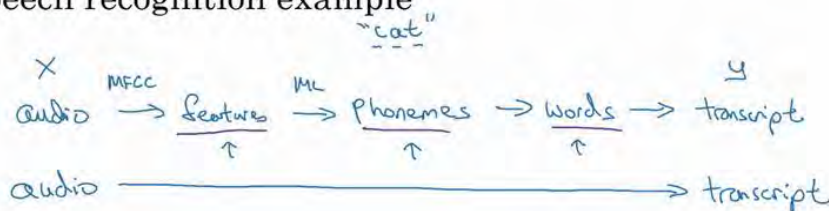 speech recognition example
"cat"
X MFCC ML y
audio → features → Phonemes → words → transcript
audio → transcript